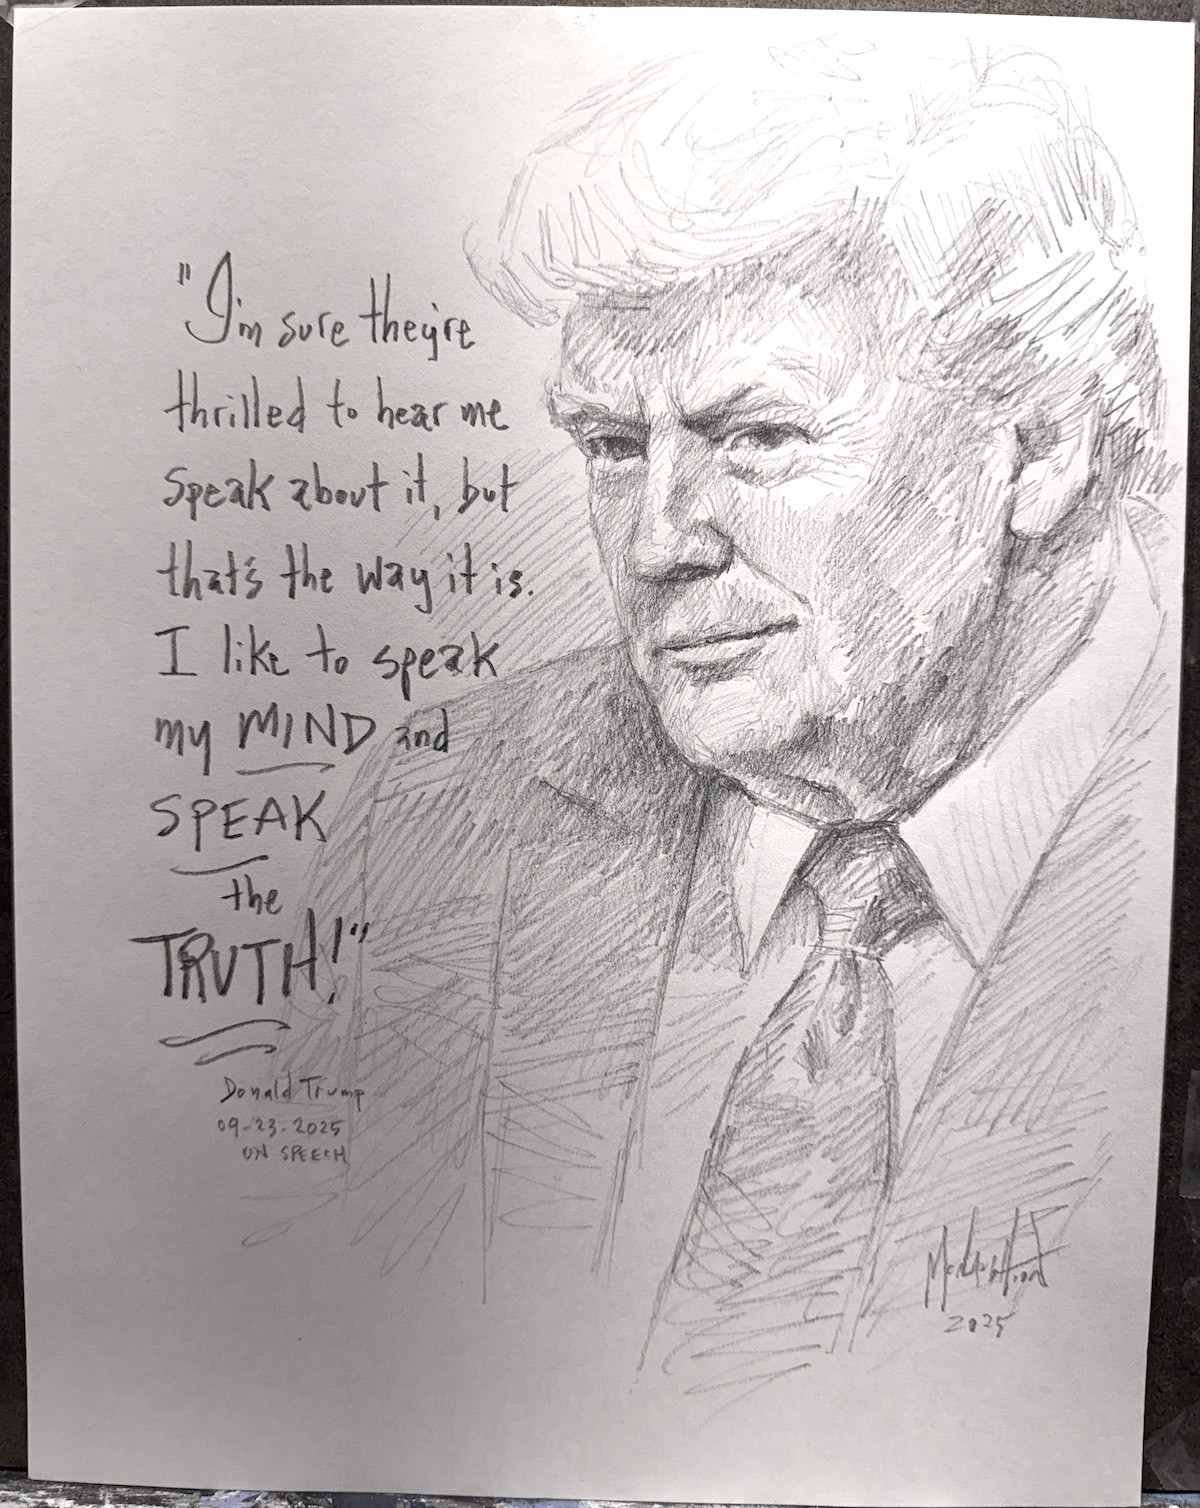 "I'm sure they're
thrilled to hear me
speak about it, but
that's the way it is.
I like to speak
my MIND and
SPEAK
the
TRUTH!"
Donald Trump
09-23-2025
UN SPEECH
2025